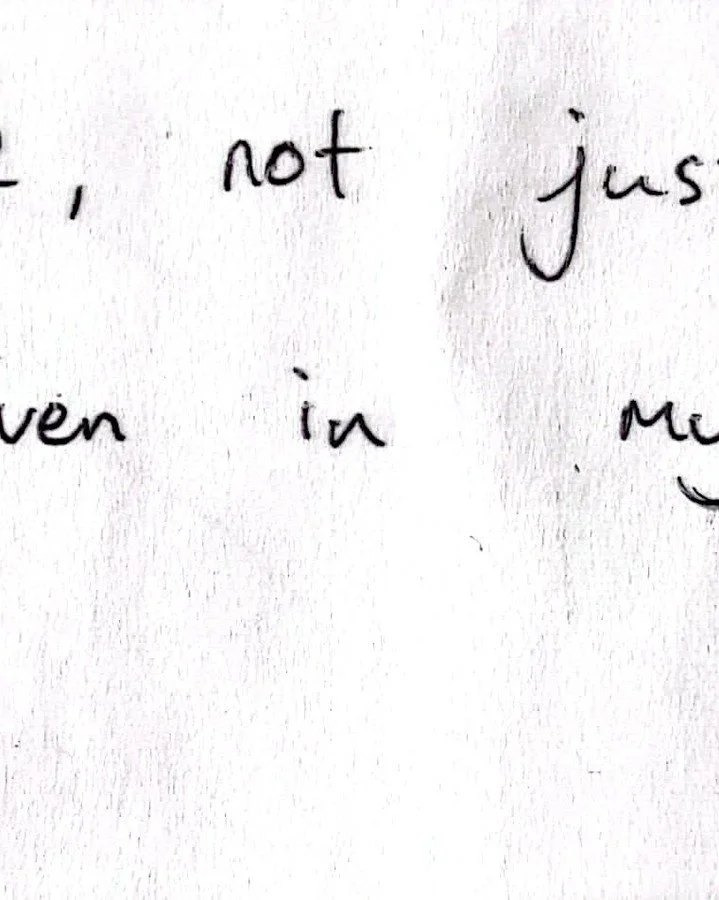 , not jus
ven in my